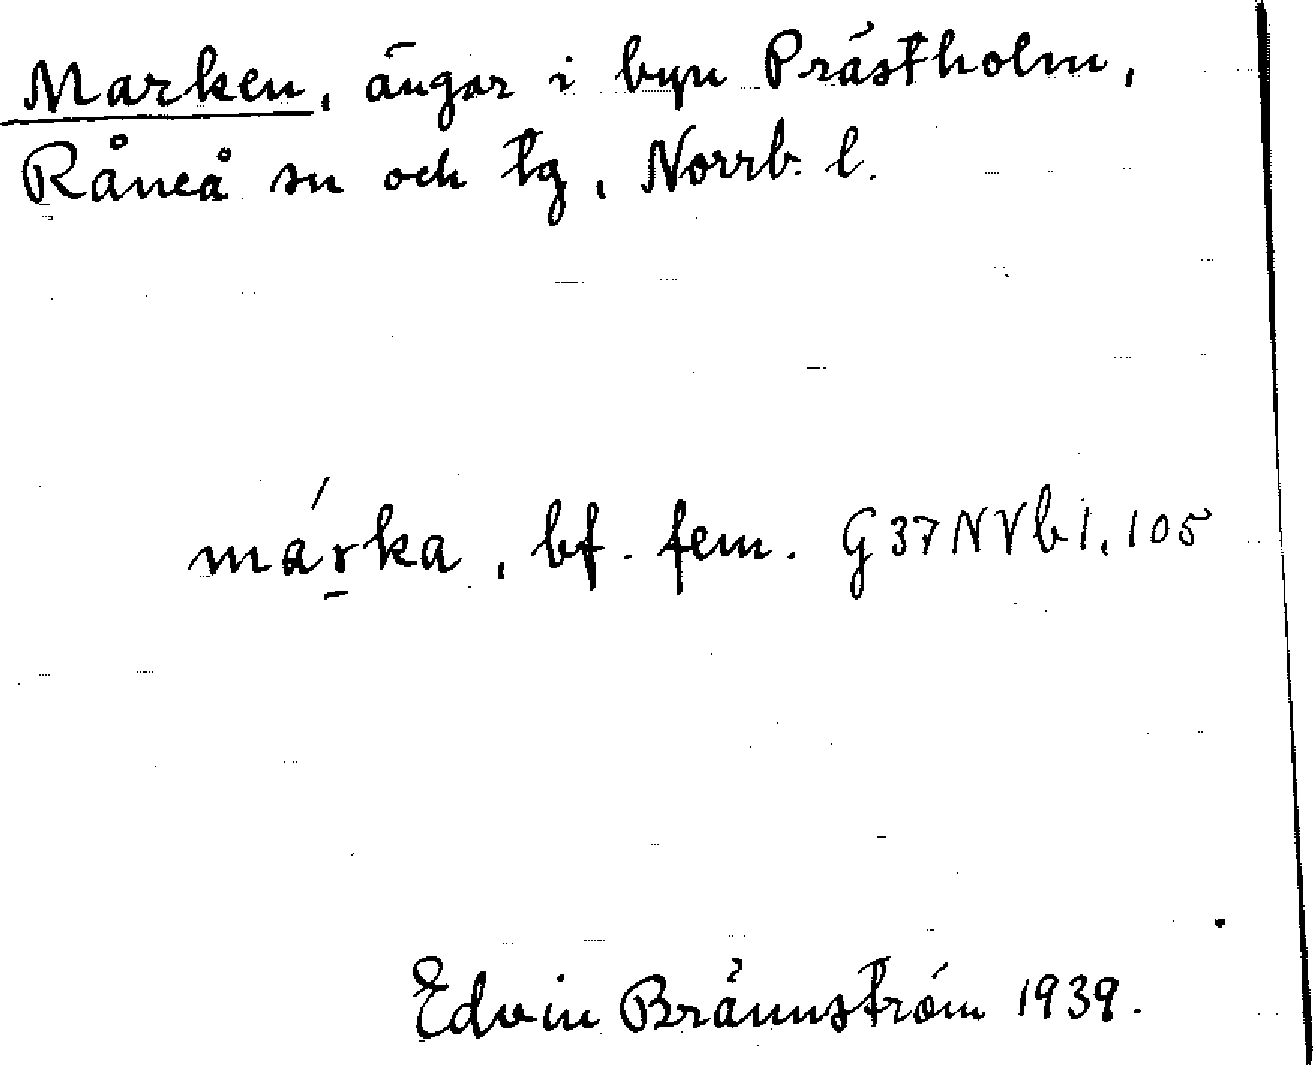 Marken, ängar i byn Prästholm,
Råneå sn och tg, Norrb. l.
márka, bf. fem. G37NVb1.105
Edvin Brännström 1939.